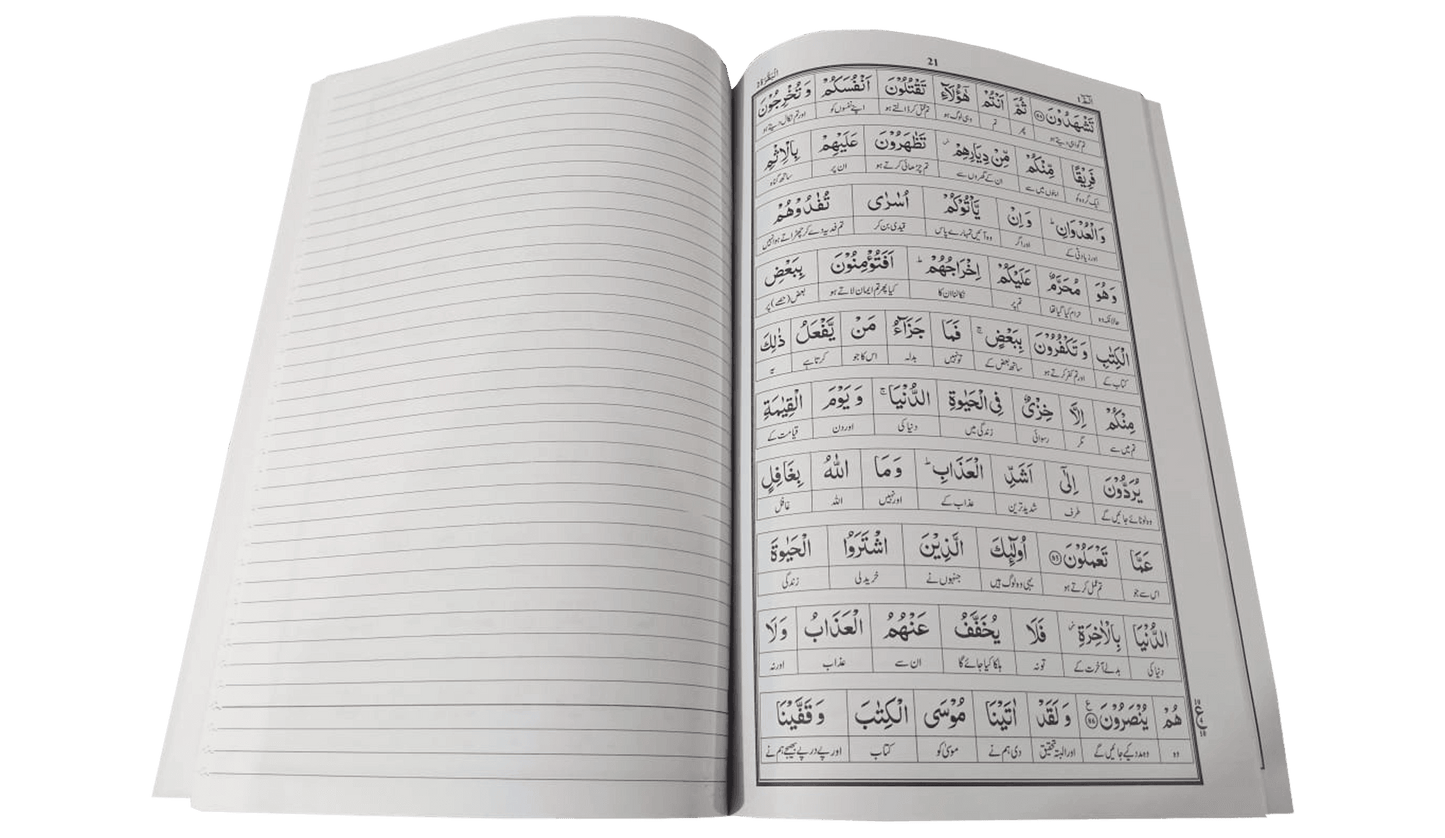 الٓمّٓ ١ 21 اَلْبَقَرَة ٢
تَشْهَدُوْنَ ﴿٨٤﴾ ثُمَّ اَنْتُمْ هٰۤؤُلَآءِ تَقْتُلُوْنَ اَنْفُسَكُمْ وَ تُخْرِجُوْنَ
تم گواہی دیتے ہو پھر تم وہی لوگ ہو تم قتل کر ڈالتے ہو اپنے نفسوں کو اور تم نکال دیتے ہو
فَرِيْقًا مِّنْكُمْ مِّنْ دِيَارِهِمْ تَظٰهَرُوْنَ عَلَيْهِمْ بِالْاِثْمِ
ایک گروہ کو اپنوں میں سے ان کے گھروں سے تم چڑھائی کرتے ہو ان پر ساتھ گناہ
وَالْعُدْوَانِ ؕ وَ اِنْ يَّاْتُوْكُمْ اُسٰرٰى تُفٰدُوْهُمْ
اور زیادتی کے اور اگر وہ آئیں تمہارے پاس قیدی بن کر تم فدیہ دے کر چھڑاتے ہو انہیں
وَهُوَ مُحَرَّمٌ عَلَيْكُمْ اِخْرَاجُهُمْ ؕ اَفَتُؤْمِنُوْنَ بِبَعْضِ
حالانکہ وہ حرام کیا گیا تھا تم پر نکالنا ان کا کیا پھر تم ایمان لاتے ہو بعض (حصے) پر
الْكِتٰبِ وَ تَكْفُرُوْنَ بِبَعْضٍ ۚ فَمَا جَزَآءُ مَنْ يَّفْعَلُ ذٰلِكَ
کتاب کے اور تم کفر کرتے ہو ساتھ بعض کے تو نہیں بدلہ اس کا جو کرتا ہے یہ
مِنْكُمْ اِلَّا خِزْىٌ فِى الْحَيٰوةِ الدُّنْيَا ۚ وَ يَوْمَ الْقِيٰمَةِ
تم میں سے مگر رسوائی زندگی میں دنیا کی اور دن قیامت کے
يُرَدُّوْنَ اِلٰٓى اَشَدِّ الْعَذَابِ ؕ وَمَا اللّٰهُ بِغَافِلٍ
وہ لوٹائے جائیں گے طرف شدید ترین عذاب کے اور نہیں اللہ غافل
عَمَّا تَعْمَلُوْنَ ﴿٨٥﴾ اُولٰٓئِكَ الَّذِيْنَ اشْتَرَوُا الْحَيٰوةَ
اس سے جو تم عمل کرتے ہو یہی وہ لوگ ہیں جنہوں نے خرید لی زندگی
الدُّنْيَا بِالْاٰخِرَةِ ؗ فَلَا يُخَفَّفُ عَنْهُمُ الْعَذَابُ وَ لَا
دنیا کی بدلے آخرت کے تو نہ ہلکا کیا جائے گا ان سے عذاب اور نہ
هُمْ يُنْصَرُوْنَ ﴿٨٦﴾ وَ لَقَدْ اٰتَيْنَا مُوْسَى الْكِتٰبَ وَ قَفَّيْنَا
وہ وہ مدد کیے جائیں گے اور البتہ تحقیق دی ہم نے موسیٰ کو کتاب اور پے درپے بھیجے ہم نے